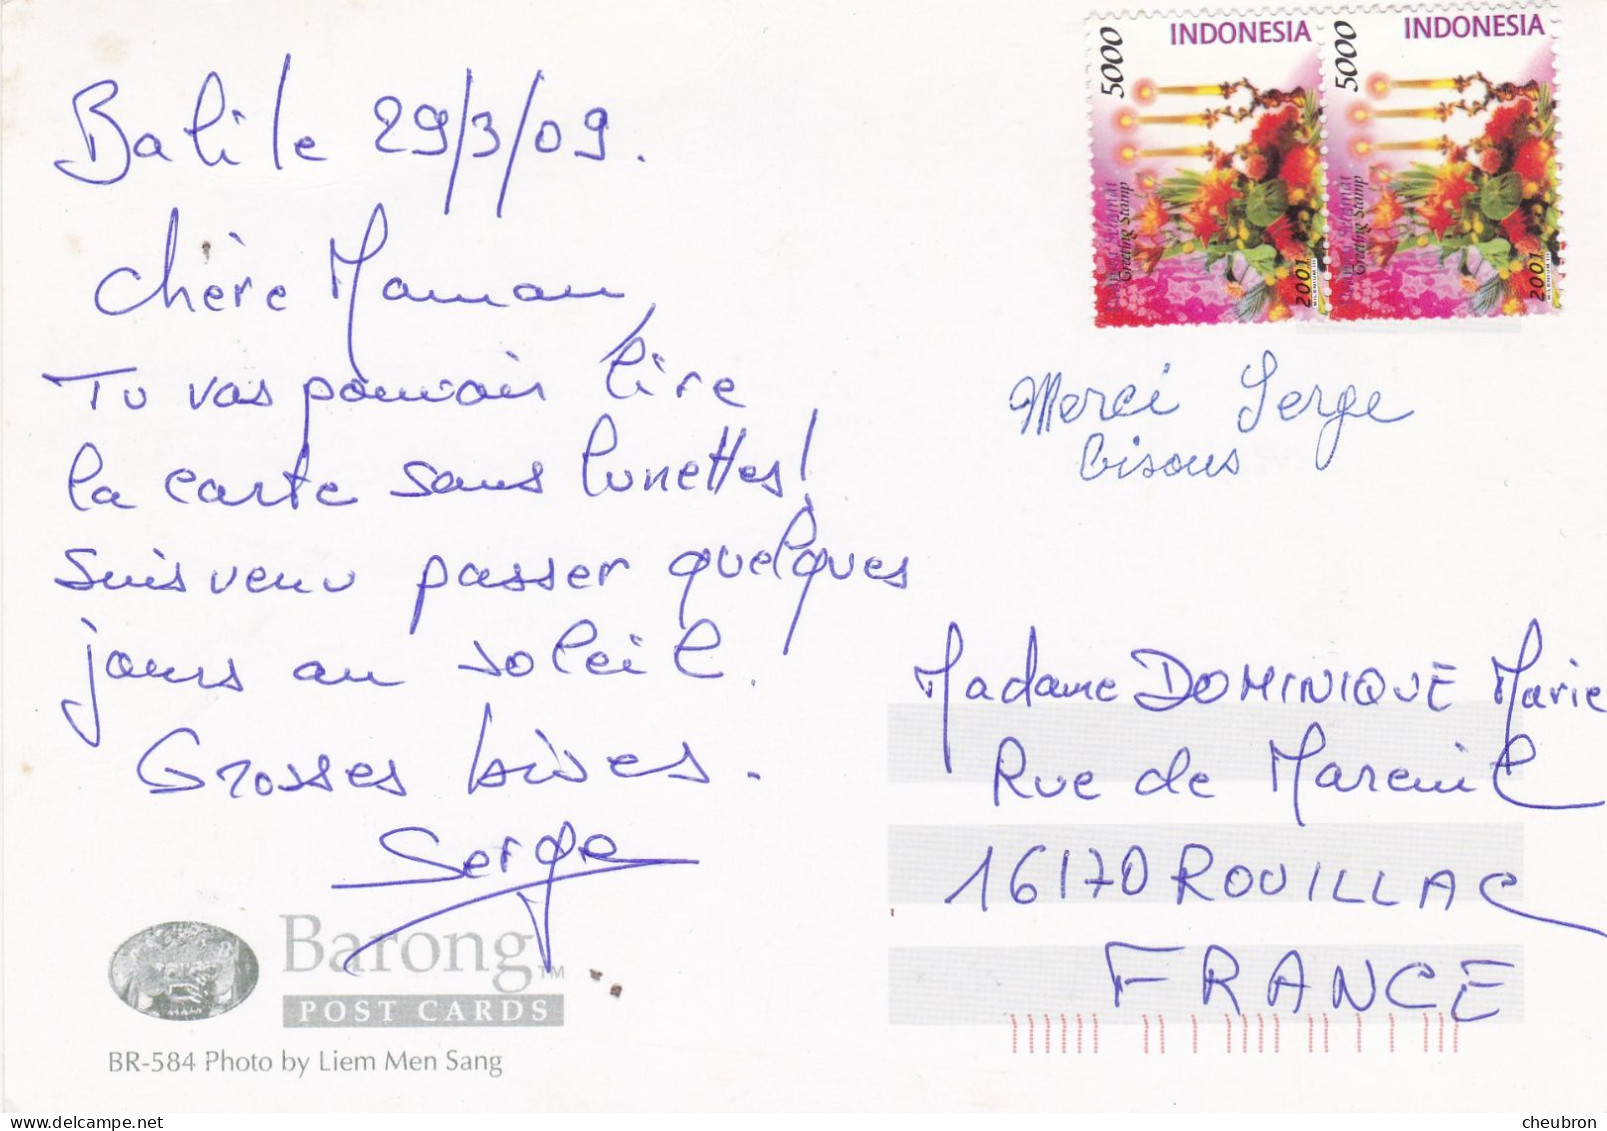 Bali le 29/3/09.
Chère Maman,
Tu vas pouvoir lire
la carte sans lunettes!
Suis venu passer quelques
jours au soleil.
Grosses bises.
Serge
Barong™
POST CARDS
BR-584 Photo by Liem Men Sang
5000
INDONESIA
Greeting Stamp
2001
5000
INDONESIA
Greeting Stamp
2001
Merci Serge
bisous
Madame DOMINIQUE Marie
Rue de Mareuil
16170 ROUILLAC
FRANCE
cheubron.com